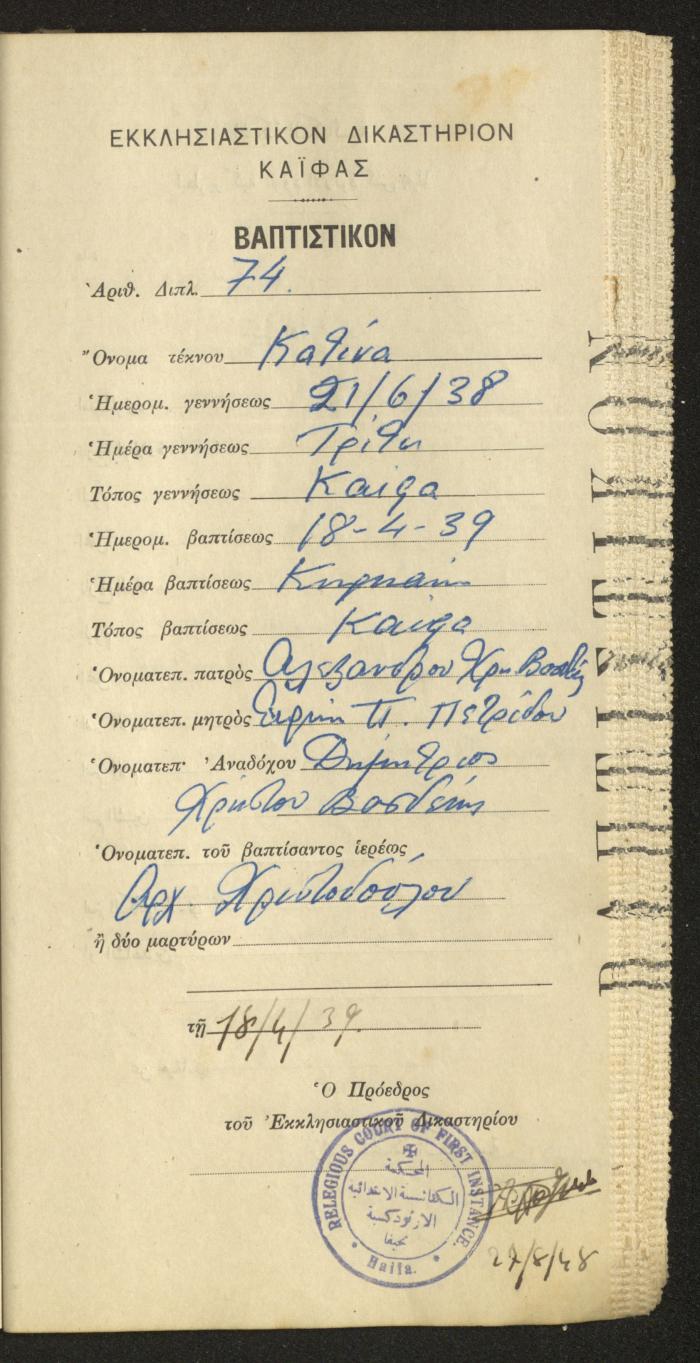 ΕΚΚΛΗΣΙΑΣΤΙΚΟΝ ΔΙΚΑΣΤΗΡΙΟΝ
ΚΑΪΦΑΣ
ΒΑΠΤΙΣΤΙΚΟΝ
Ἀριθ. Διπλ. 74.
Ὄνομα τέκνου Κατίνα
Ἡμερομ. γεννήσεως 21/6/38
Ἡμέρα γεννήσεως Τρίτη
Τόπος γεννήσεως Καιφα
Ἡμερομ. βαπτίσεως 18-4-39
Ἡμέρα βαπτίσεως Κυριακη
Τόπος βαπτίσεως Καιφα
Ὀνοματεπ. πατρὸς Αλεξανδρου Χρ.
Ὀνοματεπ. μητρὸς Ειρήνη Π. Πετρίδου
Ὀνοματεπ· Ἀναδόχου Δημητριος
Χρήστου
Ὀνοματεπ. τοῦ βαπτίσαντος ἱερέως
Αρχ. Χριστοδούλου
ἢ δύο μαρτύρων
τῇ 18/4/39.
Ὁ Πρόεδρος
τοῦ Ἐκκλησιαστικοῦ Δικαστηρίου
RELEGIOUS COURT OF FIRST INSTANCE.
المحكمة
الكنائسية الابتدائية
الارثوذكسية
بحيفا
Haifa.
27/8/48
ΒΑΠΤΙΣΤΙΚΟΝ